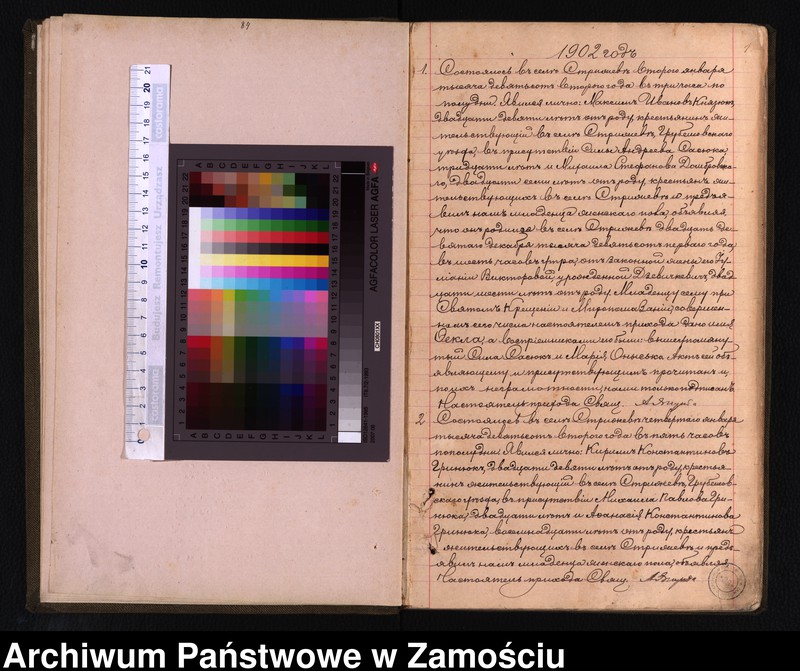 89
1
1902 годъ
1. Состоялось въ селѣ Стрижевѣ второго января
тысяча девятьсот второго года въ три часа по
полудни. Явился лично: Максимъ Ивановъ Князюк,
двадцати девяти лѣтъ отъ роду, крестьянинъ жи-
тельствующій въ селѣ Стрижевѣ, Грубешовскаго
уѣзда, въ присутствіи Ильи Андреева Сасюка,
тридцати лѣтъ и Михаила Стефанова
го, двадцати семи лѣтъ отъ роду, крестьян жи-
тельствующихъ въ селѣ Стрижевѣ и предъя-
вилъ намъ младенца женскаго пола, объявляя,
что онъ родился въ селѣ Стрижевѣ двадцать де-
вятаго декабря тысяча девятьсотъ перваго года
въ шесть часовъ утра, отъ законной жены его
Викторовой, урожденной двад-
цати шести лѣтъ отъ роду. Младенцу сему при
Святомъ Крещеніи и Миропомазаніи, совершен-
номъ сего числа настоятелемъ прихода дано имя
Ѳекла, а воспріемниками были: вышеупомяну-
тый Илья Сасюкъ и Марія Актъ сей объ-
являющему и присутствующимъ прочитанъ и
по ихъ неграмотности, нами только подписанъ.
Настоятель прихода Свящ.
2. Состоялось въ селѣ Стрижевѣ четвертаго января
тысяча девятьсотъ второго года въ пять часовъ
пополудни. Явился лично: Кириллъ Константиновъ
Гринюкъ, двадцати девяти лѣтъ отъ роду, крестья-
нинъ жительствующій въ селѣ Стрижевѣ, Грубешов-
скаго уѣзда, въ присутствіи Михаила Павлова Гри-
нюка, двадцати лѣтъ и Аѳанасія Константинова
Гринюка, восемнадцати лѣтъ отъ роду, крестьянъ
жительствующихъ въ селѣ Стрижевѣ и предъ-
явилъ намъ младенца женскаго пола, объявляя,
Настоятель прихода Свящ.
castorama Budujesz Remontujesz Urządzasz castorama
AGFACOLOR LASER AGFA
A B C D E F G H I J K L
Archiwum Państwowe w Zamościu